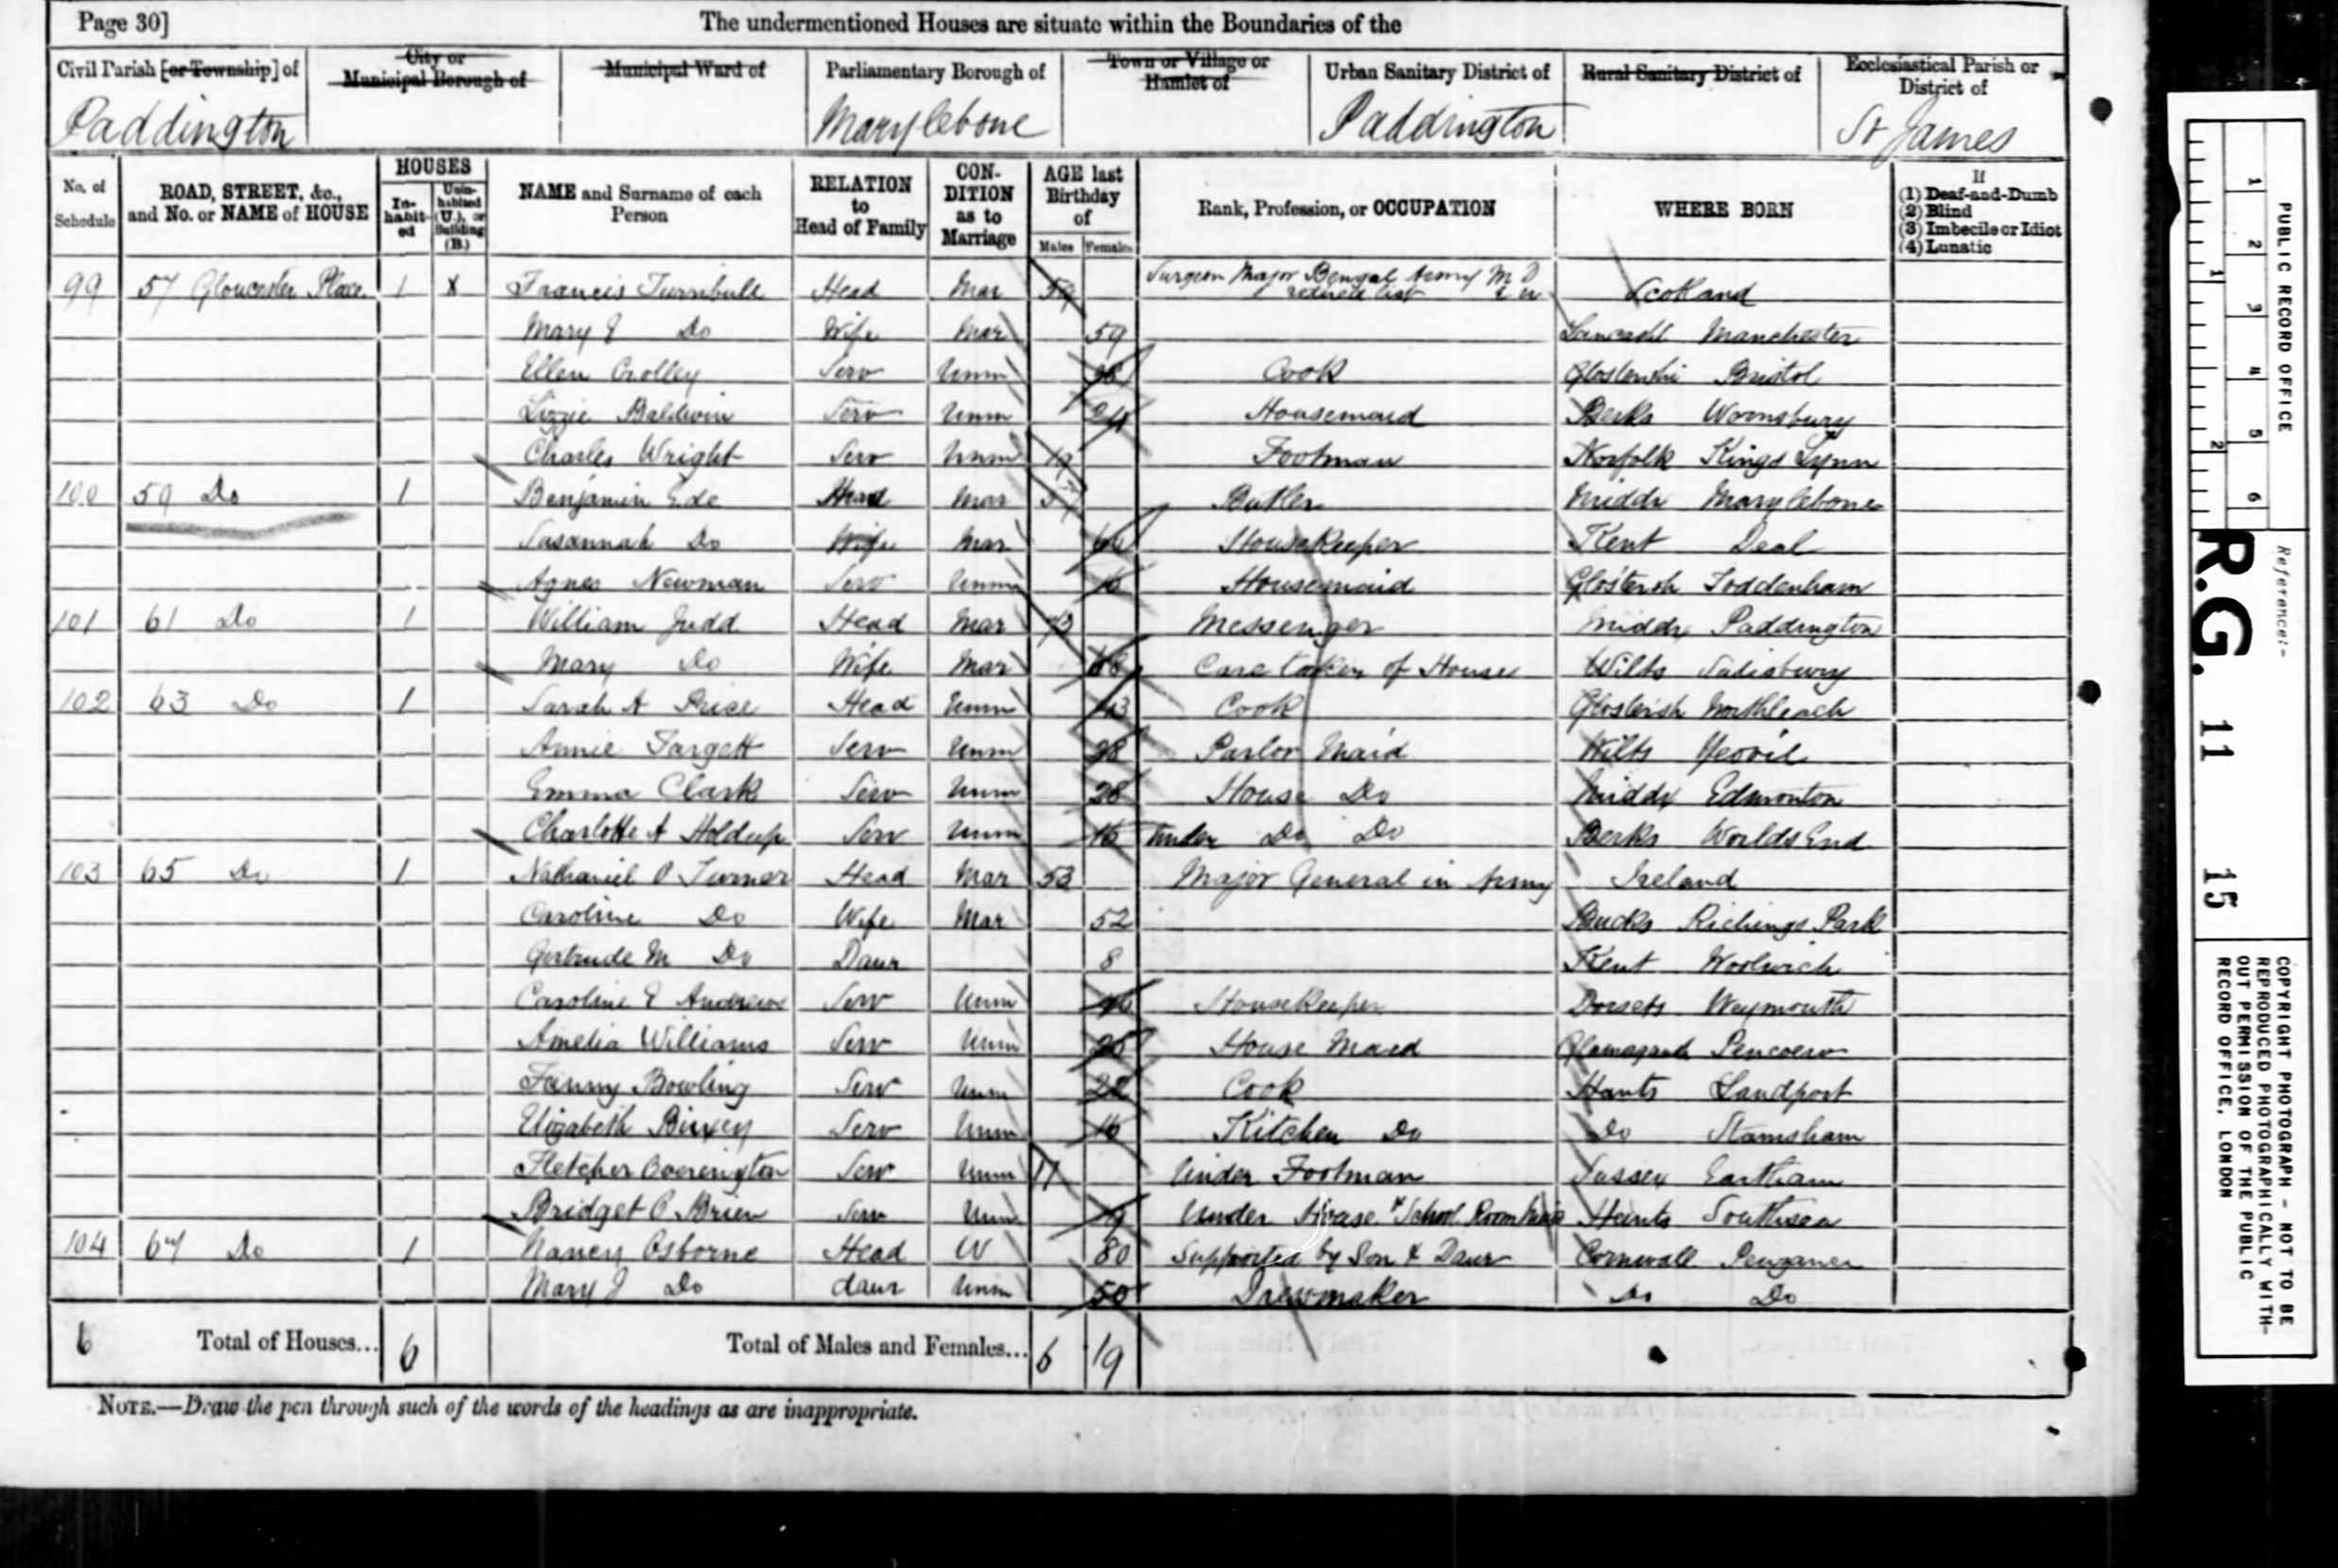 Page 30]
The undermentioned Houses are situate within the Boundaries of the
Civil Parish [or Township] of
City or Municipal Borough of
Municipal Ward of
Parliamentary Borough of
Town or Village or Hamlet of
Urban Sanitary District of
Rural Sanitary District of
Ecclesiastical Parish or District of
Paddington
Marylebone
Paddington
St James
No. of Schedule
ROAD, STREET, &c., and No. or NAME of HOUSE
HOUSES
In-habit-ed
Unin-habited (U.), or Building (B.)
NAME and Surname of each Person
RELATION to Head of Family
CON-DITION as to Marriage
AGE last Birthday of
Males
Females
Rank, Profession, or OCCUPATION
WHERE BORN
If
(1) Deaf-and-Dumb
(2) Blind
(3) Imbecile or Idiot
(4) Lunatic
99 57 Gloucester Place 1 X Francis Turnbull Head Mar Surgeon Major Bengal Army M D retired list Scotland
Mary E Do Wife Mar 59 Manchester
Ellen Crolley Serv Unm Cook Bristol
Lizzie Baldwin Serv Unm 24 Housemaid Berks
Charles Wright Serv Unm 19 Footman Norfolk Kings Lynn
100 59 Do 1 Benjamin Ede Head Mar Butler Middx Marylebone
Susannah Do Wife Mar 66 Housekeeper Kent Deal
Agnes Newman Serv Unm Housemaid Glostersh Toddenham
101 61 Do 1 William Judd Head Mar Messenger Middx Paddington
Mary Do Wife Mar 68 Care taker of House Wilts Salisbury
102 63 Do 1 Sarah A Price Head Unm 43 Cook Glostersh Northleach
Annie Targett Serv Unm 28 Parlor Maid Wilts Yeovil
Emma Clark Serv Unm 28 House Do Middx Edmonton
Charlotte A Holdup Serv Unm 16 Under Do Do Berks Worlds End
103 65 Do 1 Nathaniel O Turner Head Mar 53 Major General in Army Ireland
Caroline Do Wife Mar 52 Bucks Richings Park
Gertrude M Do Daur 8 Kent Woolwich
Caroline E Andrews Serv Unm 46 Housekeeper Dorsets Weymouth
Amelia Williams Serv Unm 25 House Maid
Fanny Bowling Serv Unm 22 Cook Hants Landport
Elizabeth Serv Unm 16 Kitchen Do Do Stamsham
Fletcher Overington Serv Unm 17 Under Footman Sussex Eartham
Bridget O Brien Serv Unm Under House & School Room Hants Southsea
104 67 Do 1 Nancy Osborne Head W 80 Supported by Son & Daur Cornwall
Mary J Do daur Unm 50 Dressmaker Do Do
6 Total of Houses... 6 Total of Males and Females... 6 19
NOTE.—Draw the pen through such of the words of the headings as are inappropriate.
PUBLIC RECORD OFFICE
1 2 3 4 5 6
1 2
Reference:-
R.G. 11 15
COPYRIGHT PHOTOGRAPH - NOT TO BE
REPRODUCED PHOTOGRAPHICALLY WITH-
OUT PERMISSION OF THE PUBLIC
RECORD OFFICE, LONDON